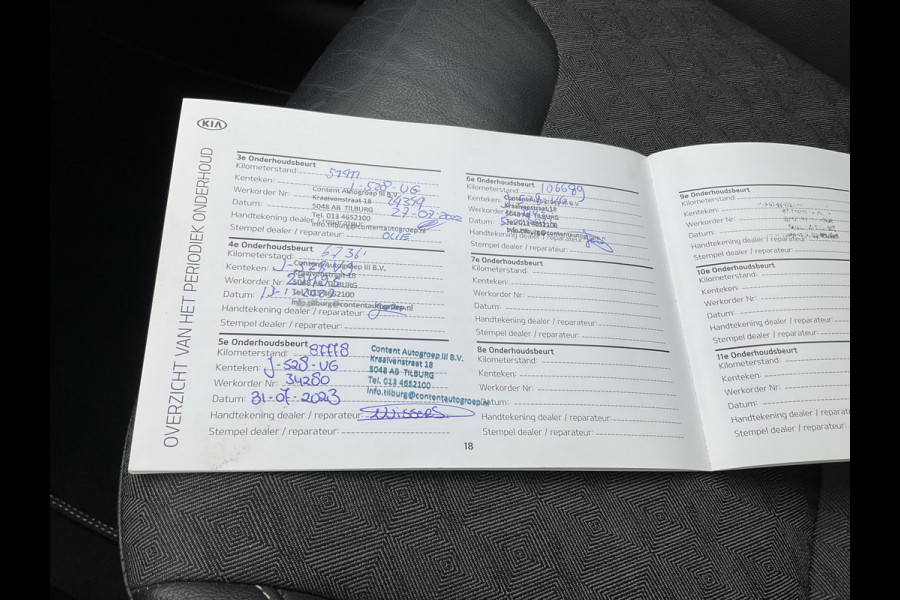 KIA
OVERZICHT VAN HET PERIODIEK ONDERHOUD
3e Onderhoudsbeurt
Kilometerstand:
Kenteken: J-528-UG
Werkorder Nr:
Datum: 27-07-2022
Handtekening dealer / reparateur:
Stempel dealer / reparateur:
Content Autogroep III B.V.
Kraaivenstraat 18
5048 AB TILBURG
Tel. 013 4652100
Info.tilburg@contentautogroep.nl
4e Onderhoudsbeurt
Kilometerstand:
Kenteken: J-528-UG
Werkorder Nr:
Datum:
Handtekening dealer / reparateur:
Stempel dealer / reparateur:
Content Autogroep III B.V.
Kraaivenstraat 18
5048 AB TILBURG
Tel. 013 4652100
Info.tilburg@contentautogroep.nl
5e Onderhoudsbeurt
Kilometerstand: 87778
Kenteken: J-528-UG
Werkorder Nr: 34280
Datum: 31-07-2023
Handtekening dealer / reparateur: Wissers
Stempel dealer / reparateur:
Content Autogroep III B.V.
Kraaivenstraat 18
5048 AB TILBURG
Tel. 013 4652100
Info.tilburg@contentautogroep.nl
6e Onderhoudsbeurt
Kilometerstand: 106689
Kenteken:
Werkorder Nr:
Datum:
Handtekening dealer / reparateur:
Stempel dealer / reparateur:
7e Onderhoudsbeurt
Kilometerstand:
Kenteken:
Werkorder Nr:
Datum:
Handtekening dealer / reparateur:
Stempel dealer / reparateur:
8e Onderhoudsbeurt
Kilometerstand:
Kenteken:
Werkorder Nr:
Datum:
Handtekening dealer / reparateur:
Stempel dealer / reparateur:
18
9e Onderhoudsbeurt
Kilometerstand:
Kenteken:
Werkorder Nr:
Datum:
Handtekening dealer / reparateur:
Stempel dealer / reparateur:
10e Onderhoudsbeurt
Kilometerstand:
Kenteken:
Werkorder Nr:
Datum:
Handtekening dealer / reparateur:
Stempel dealer / reparateur:
11e Onderhoudsbeurt
Kilometerstand:
Kenteken:
Werkorder Nr:
Datum:
Handtekening dealer / reparateur
Stempel dealer / reparateur: